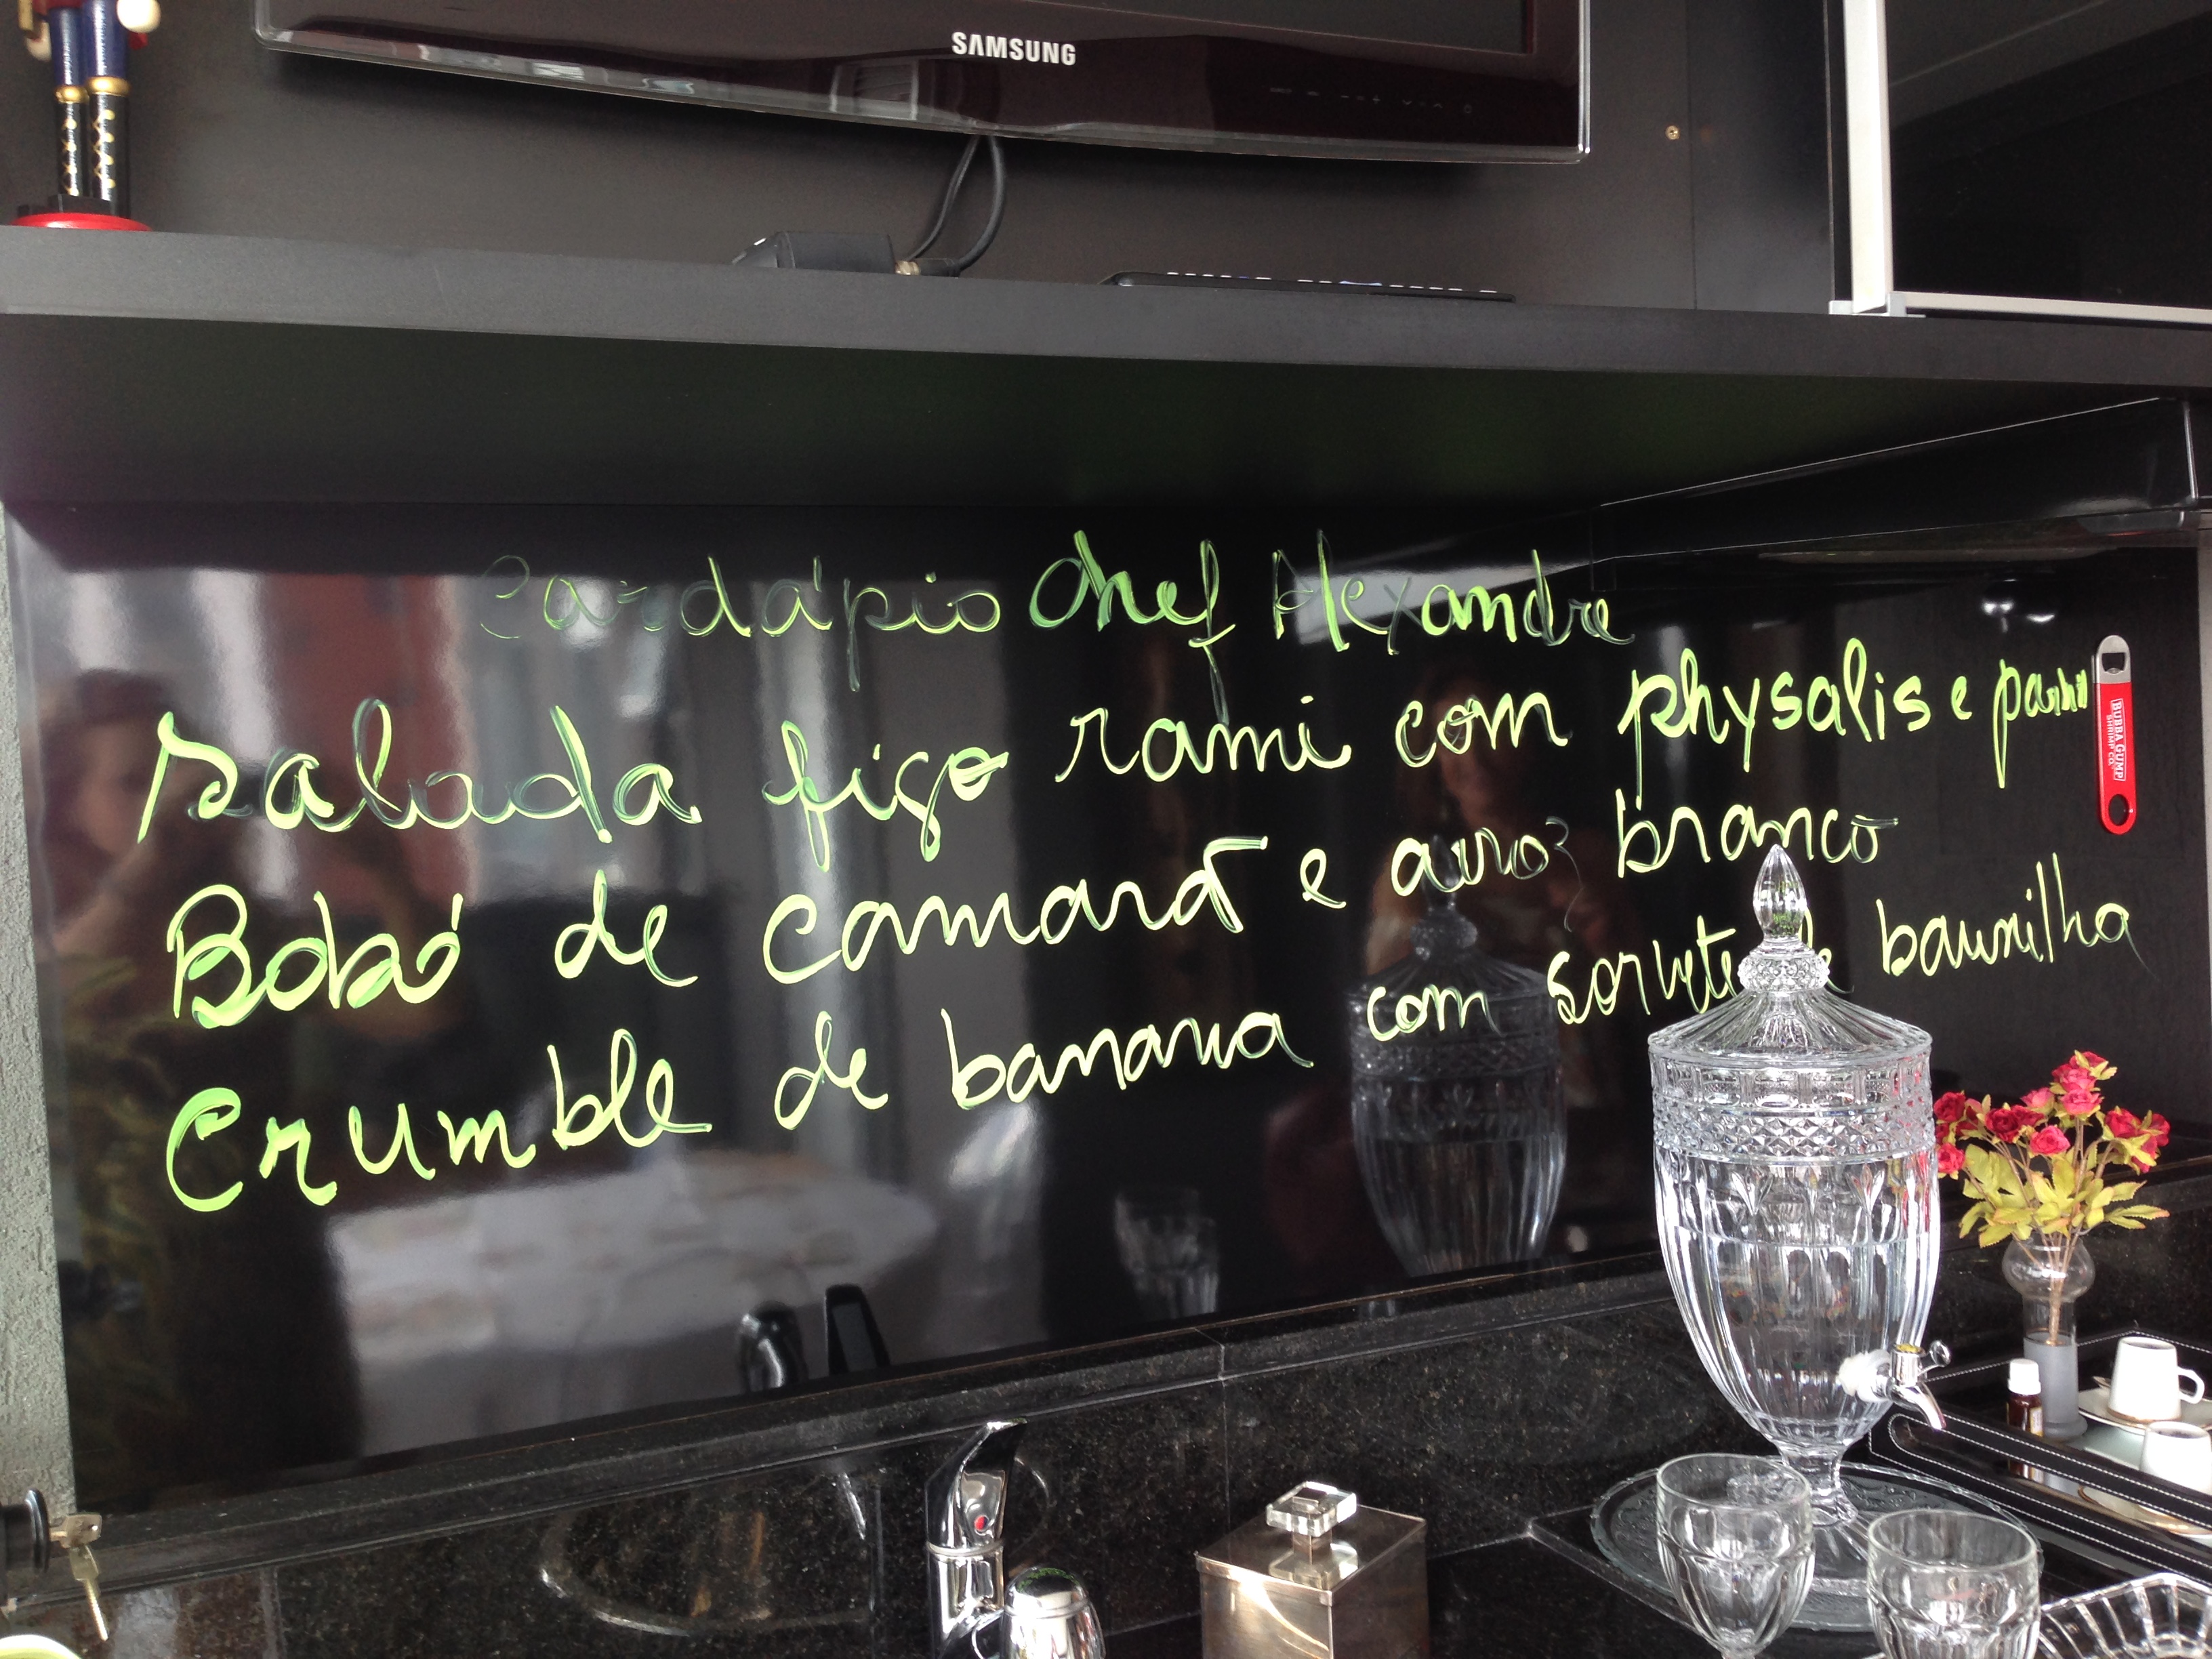 SAMSUNG
Cardápio Chef Alexandre
Salada figo rami com physalis e
Bobó de camarão e arroz branco
Crumble de banana com sorvete de baunilha
BUBBA GUMP
SHRIMP CO.